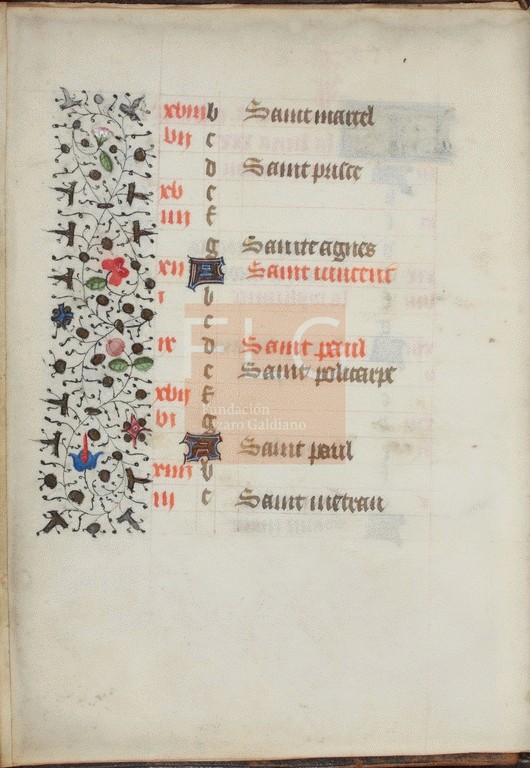 xviii b Saint marcel
vii c
d Saint prisce
xv e
iiii f
g Sainte agnes
xii A Saint vincent
i b
c
ix d Saint paul
e Saint policarpe
xvii f
vi g
A Saint paul
xiiii b
iii c Saint metran
FLG
Fundación
Lázaro Galdiano